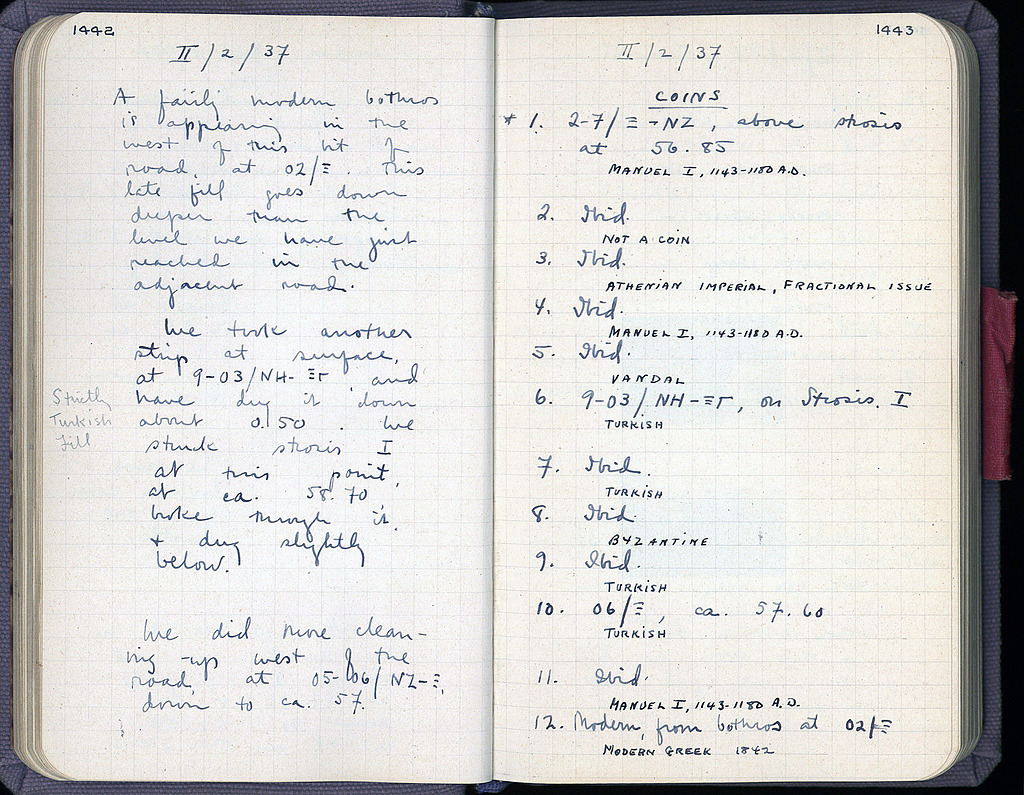 1442
II / 2 / 37
A fairly modern bothros
is appearing in the
west of this bit of
road, at 02/Ξ. This
late fill goes down
deeper than the
level we have just
reached in the
adjacent road.
We took another
strip at surface,
at 9-03/ΝΗ-ΞΓ, and
have dug it down
about 0.50. We
struck strosis I
at this point,
at ca. 58.70
broke through it,
+ dug slightly
below.
Strictly
Turkish
fill
We did more clean-
ing-up west of the
road, at 05-06/ΝΖ-Ξ,
down to ca. 57.
1443
II / 2 / 37
COINS
* 1. 2-7/Ξ-ΝΖ, above strosis
at 56.85
MANUEL I, 1143-1180 A.D.
2. Ibid.
NOT A COIN
3. Ibid.
ATHENIAN IMPERIAL, FRACTIONAL ISSUE
4. Ibid.
MANUEL I, 1143-1180 A.D.
5. Ibid.
VANDAL
6. 9-03/ΝΗ-ΞΓ, on Strosis I
TURKISH
7. Ibid.
TURKISH
8. Ibid.
BYZANTINE
9. Ibid.
TURKISH
10. 06/Ξ, ca. 57.60
TURKISH
11. Ibid.
MANUEL I, 1143-1180 A.D.
12. Modern, from bothros at 02/Ξ
MODERN GREEK 1842